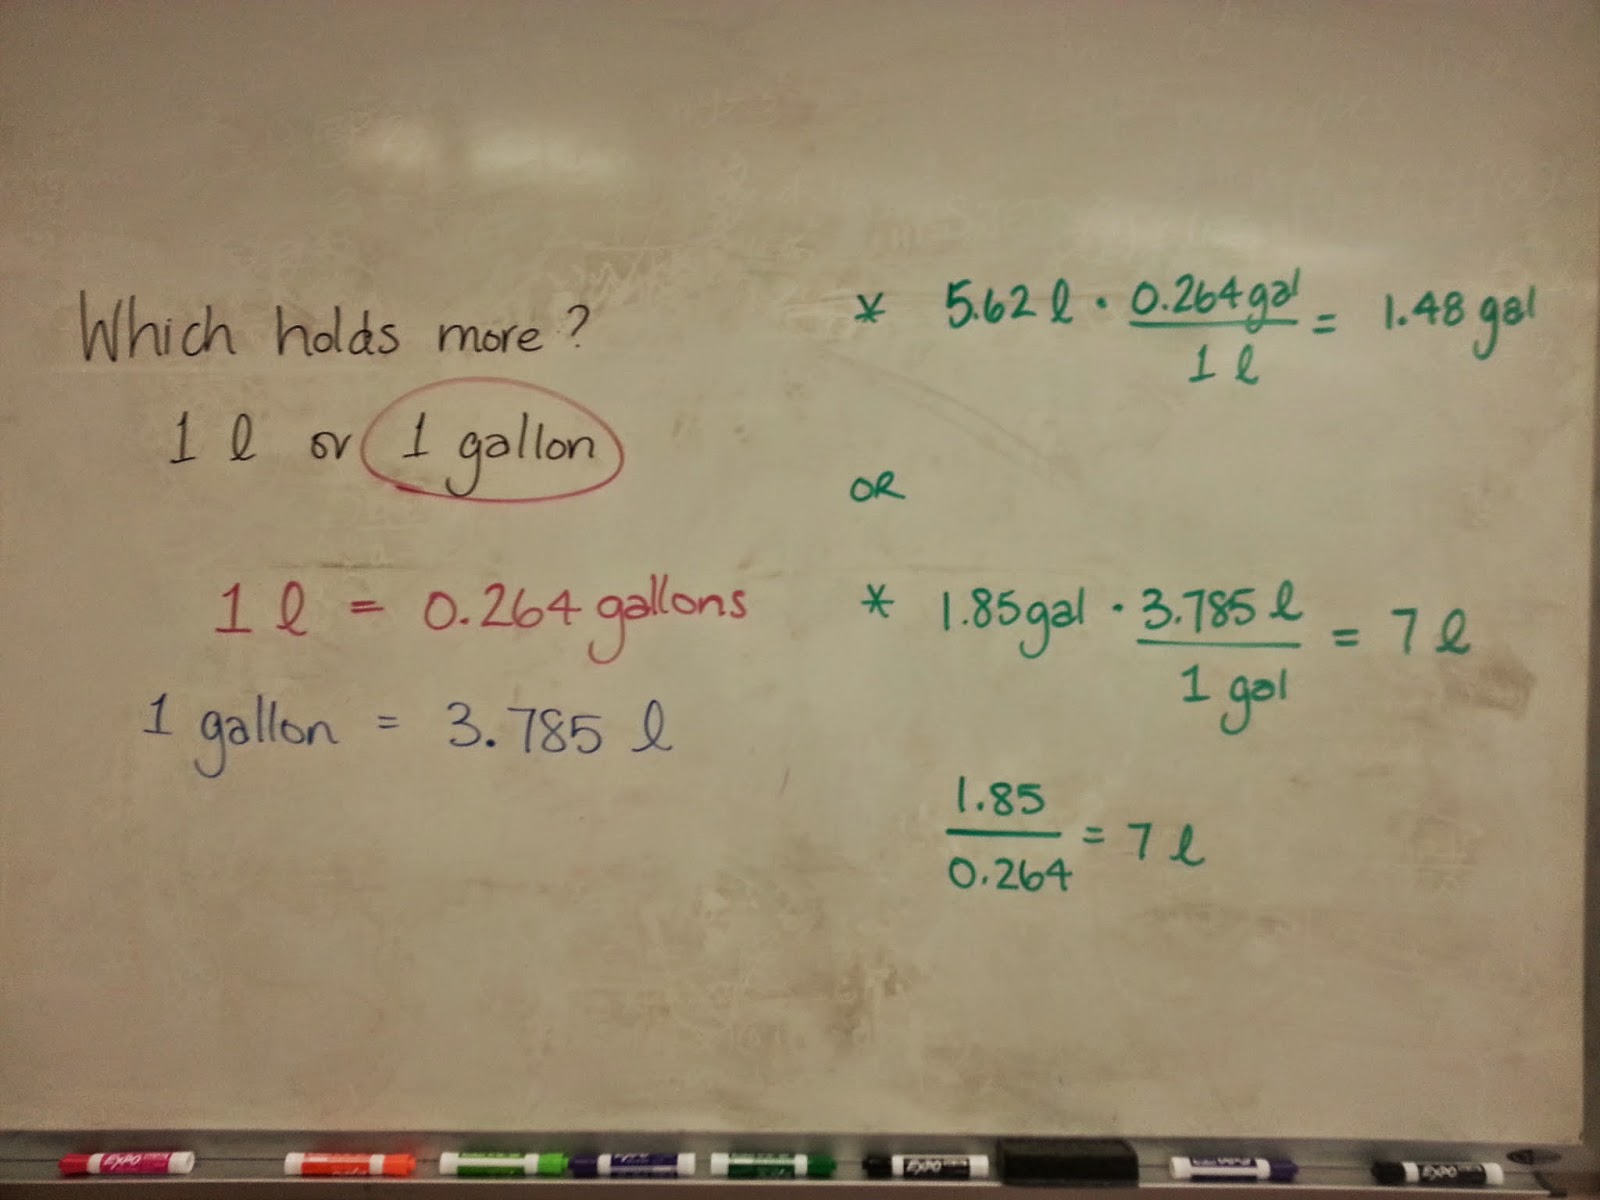 Which holds more?
1 l or 1 gallon
1 l = 0.264 gallons
1 gallon = 3.785 l
* 5.62 l · 0.264 gal / 1 l = 1.48 gal
OR
* 1.85 gal · 3.785 l / 1 gal = 7 l
1.85 / 0.264 = 7 l
EXPO
EXPO
EXPO